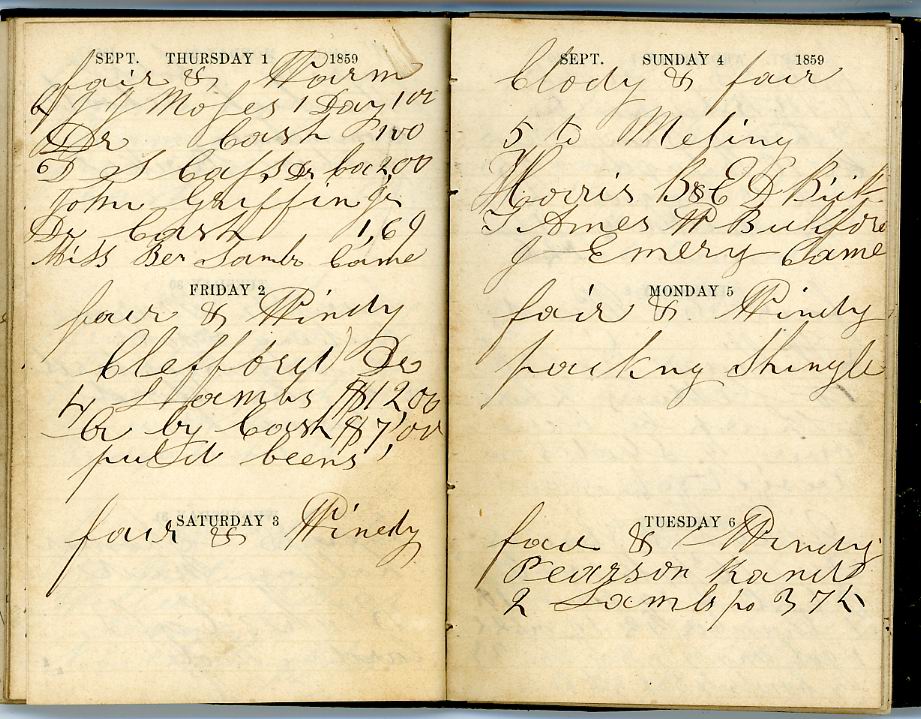 SEPT. THURSDAY 1 1859
fair & Warm
J Moses 1 Day 100
Dr Cash 100
John Griffin
Dr Cash 1,69
Miss Lamb Came
FRIDAY 2
fair & Windy
Clefford Dr
4 Lambs $12,00
Cr by Cash $7,00
pul d beens
SATURDAY 3
fair & Windy
SEPT. SUNDAY 4 1859
Clody & fair
5 to Meting
Horris B & E D
Ames W
J Emery Came
MONDAY 5
fair & Windy
packng Shingle
TUESDAY 6
fair & Windy
Pearson Rand
2 Lambs po 3 75